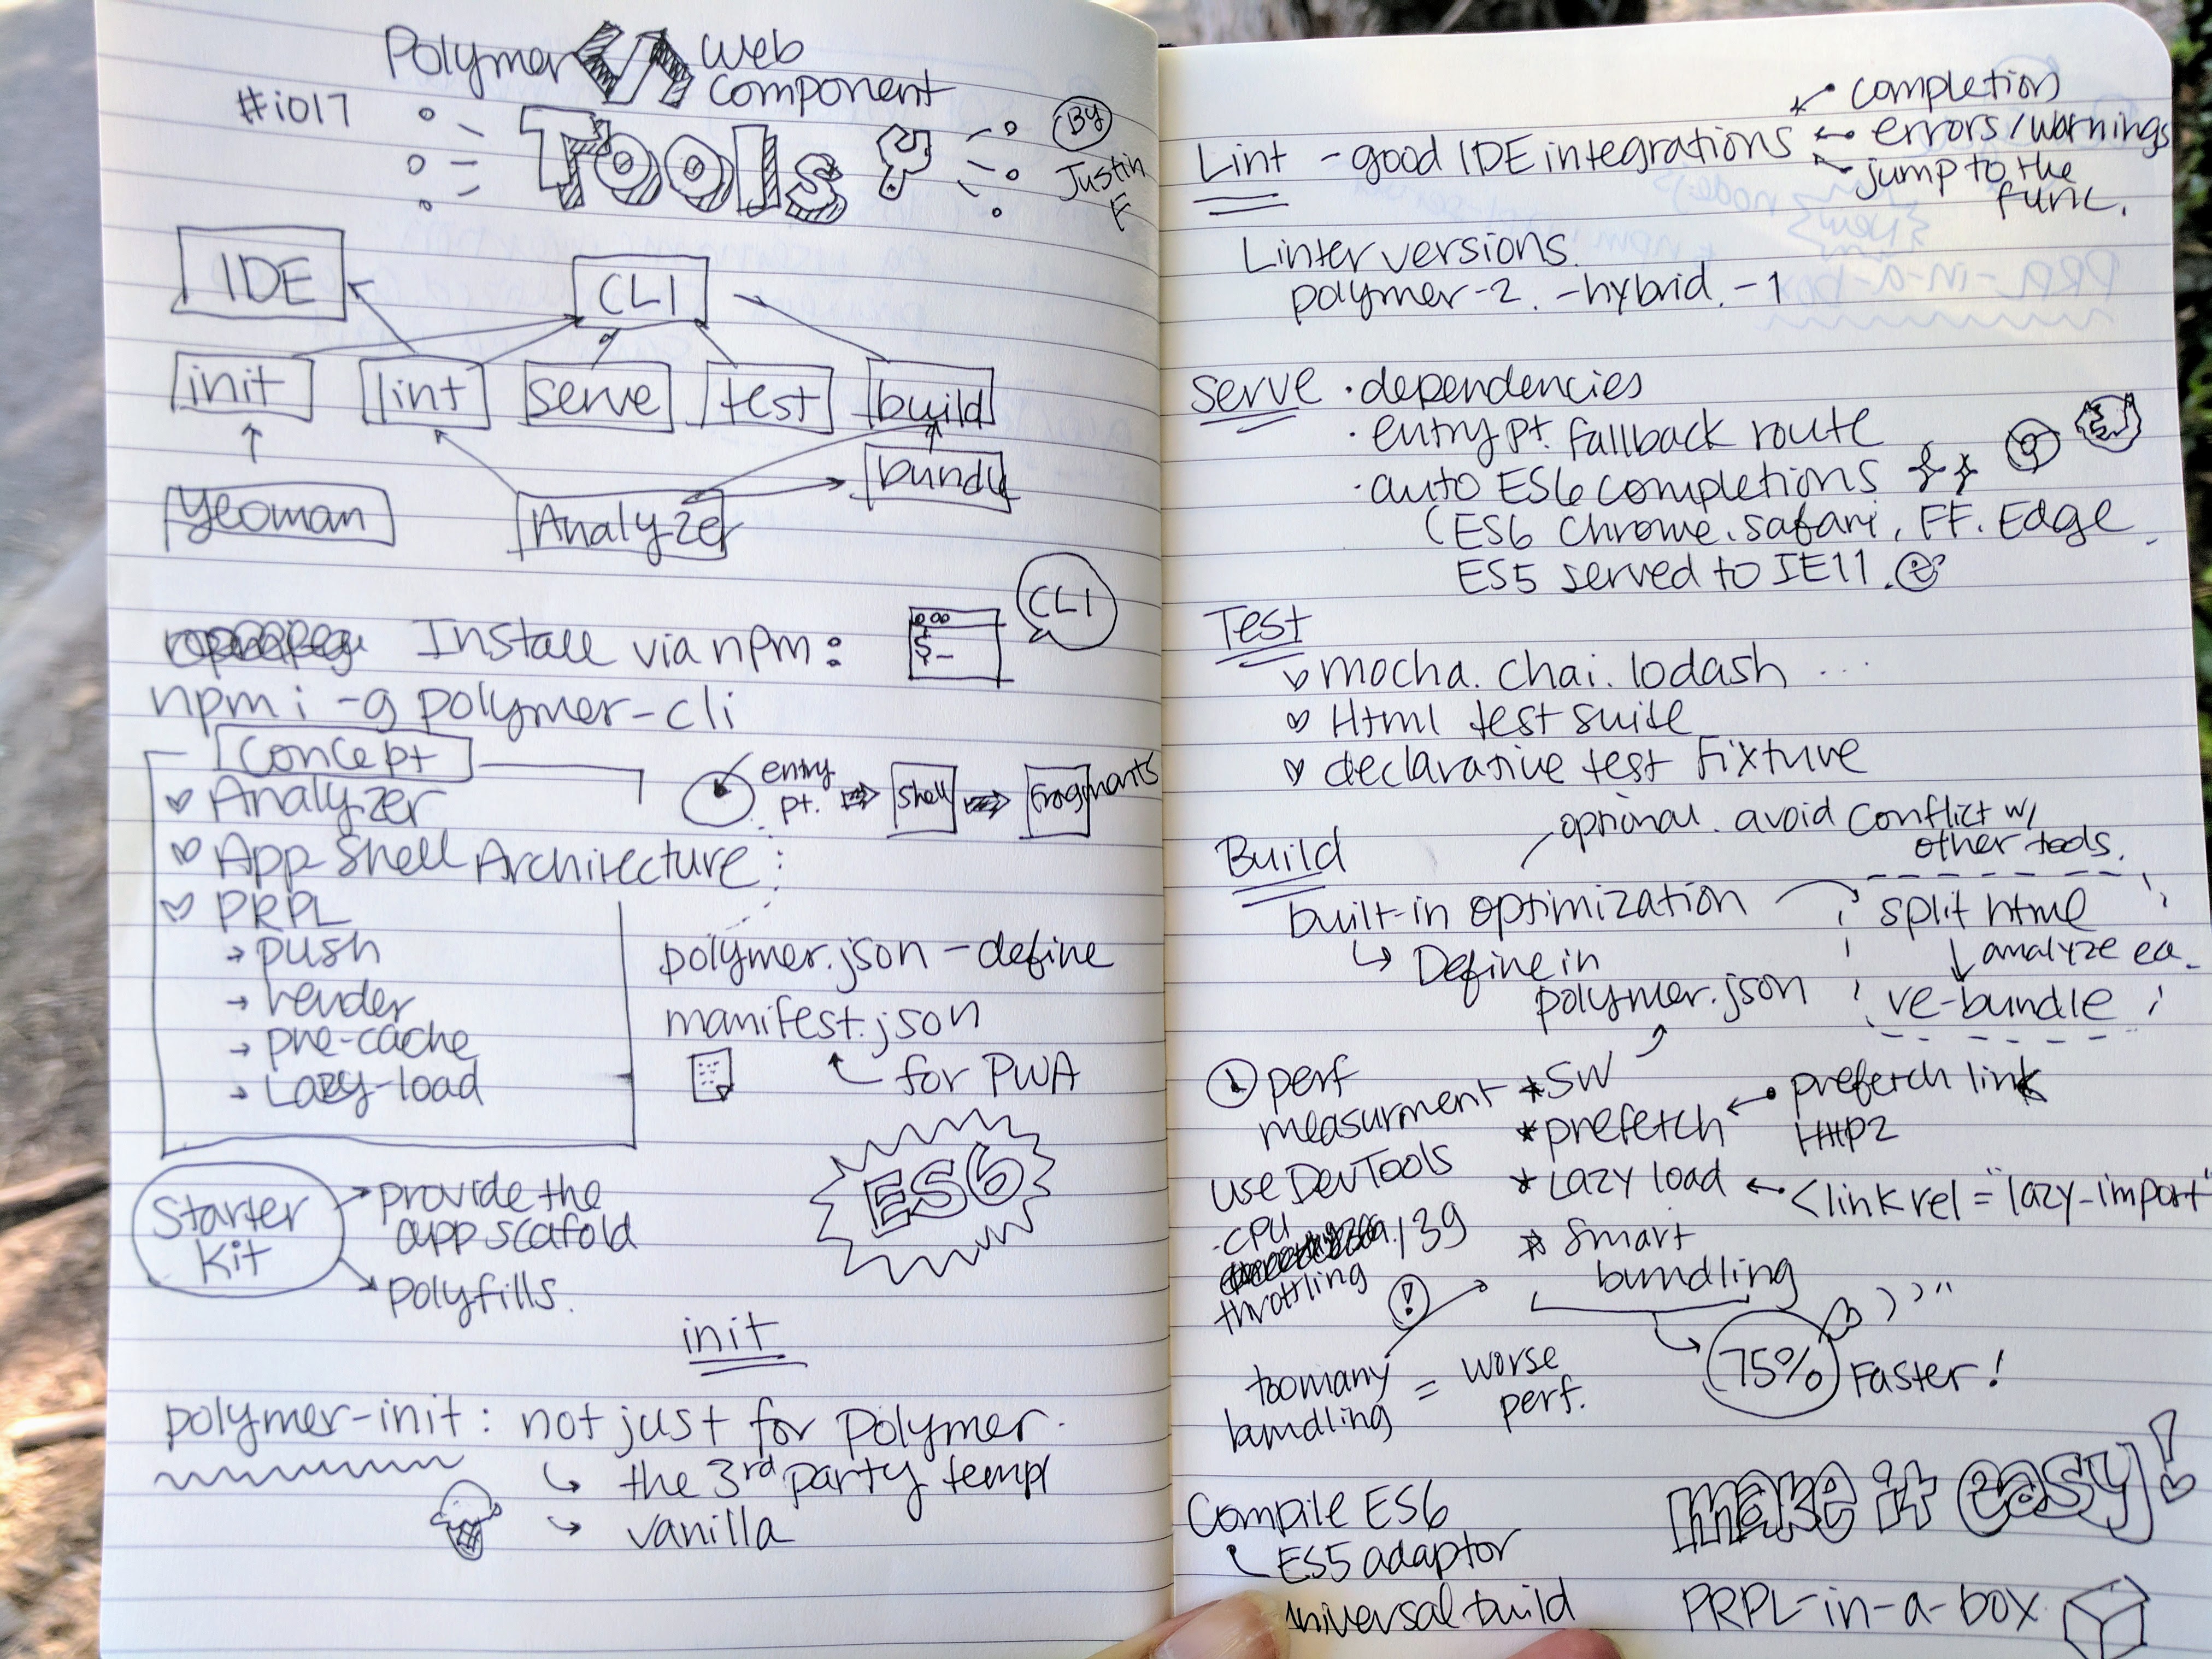 Polymer </> Web
Component
#io17
Tools
By
Justin
F
IDE
CLI
init
lint
serve
test
build
bundl
yeoman
Analyzer
Install via npm:
$_
CLI
npm i -g polymer-cli
Concept
Analyzer
App Shell Architecture
PRPL
→ push
→ render
→ pre-cache
→ Lazy-load
entry
pt.
Shell
Fragments
polymer.json - define
manifest.json
for PWA
Starter
Kit
provide the
app scafold
polyfills.
ES6
init
polymer-init: not just for polymer.
the 3rd party templ
vanilla
Lint - good IDE integrations
completion
errors/warnings
jump to the
func.
Linter versions.
polymer-2. -hybrid. -1
Serve · dependencies
· entry pt. fallback route
· auto ES6 completions
(ES6 Chrome. safari, FF. Edge
ES5 served to IE11.
Test
mocha. chai. lodash ...
Html test suite
declarative test fixture
Build
optional. avoid conflict w/
other tools.
built-in optimization
Define in
polymer.json
split html
analyze ea.
re-bundle
perf
measurment
use DevTools
-CPU
throttling
* SW
* prefetch
prefetch link
HTTP2
* Lazy load ← <link rel="lazy-import"
* smart
bundling
! 
too many
bundling
= worse
perf.
75% Faster!
Compile ES6
ES5 adaptor
universal build
make it easy!
PRPL-in-a-box